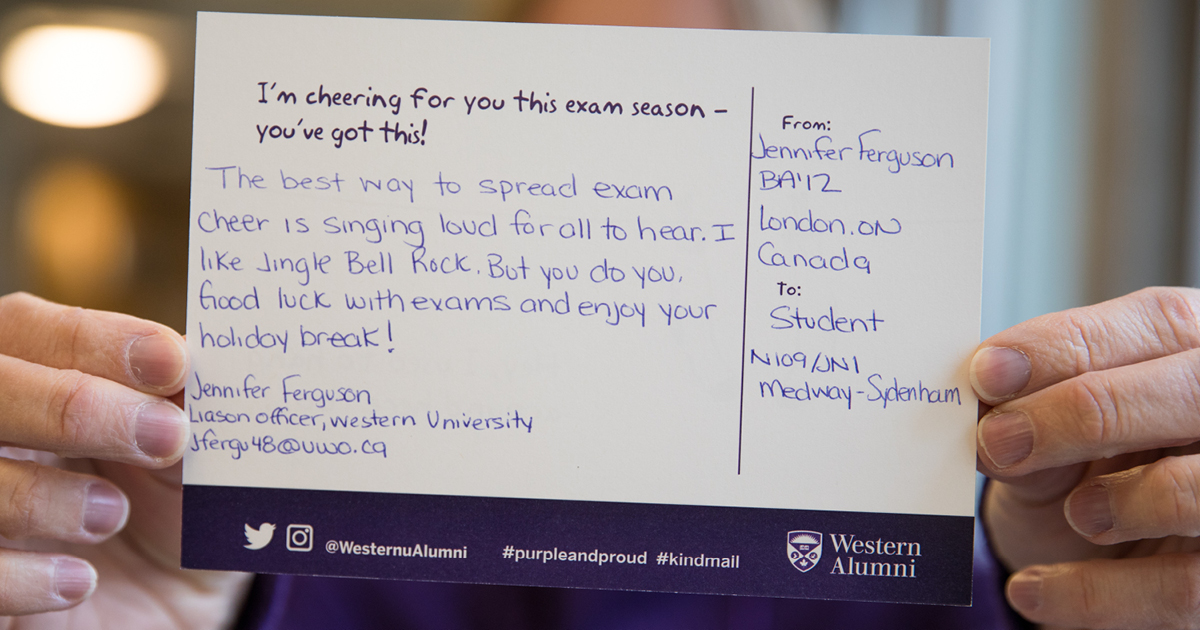 I'm cheering for you this exam season –
you've got this!
The best way to spread exam
cheer is singing loud for all to hear. I
like Jingle Bell Rock. But you do you.
Good luck with exams and enjoy your
holiday break!
Jennifer Ferguson
Liason officer, western University
Jfergu48@uwo.ca
From:
Jennifer Ferguson
BA'12
London, ON
Canada
To:
Student
N109/JN1
Medway-Sydenham
@WesternuAlumni #purpleandproud #kindmail
Western
Alumni